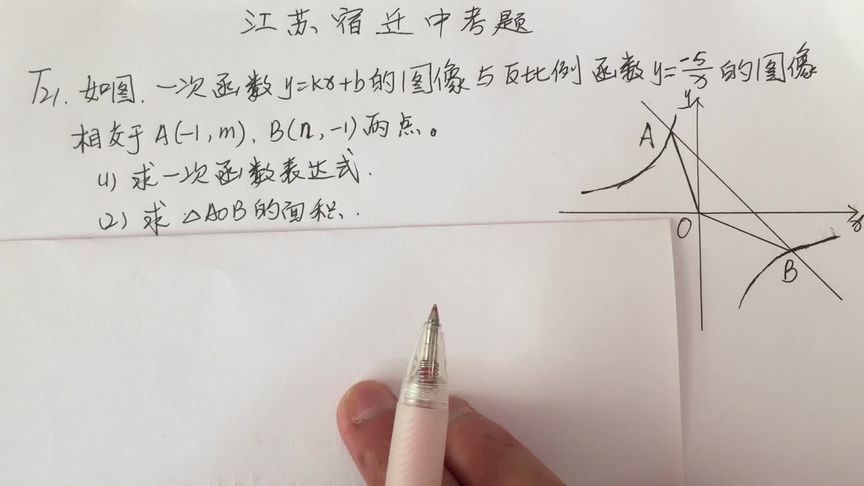 江苏宿迁中考题
T21. 如图, 一次函数y=kx+b的图像与反比例函数y=\frac{-5}{x}的图像
相交于A(-1,m), B(n,-1)两点。
(1) 求一次函数表达式.
(2) 求△AOB的面积.
y
A
O
x
B